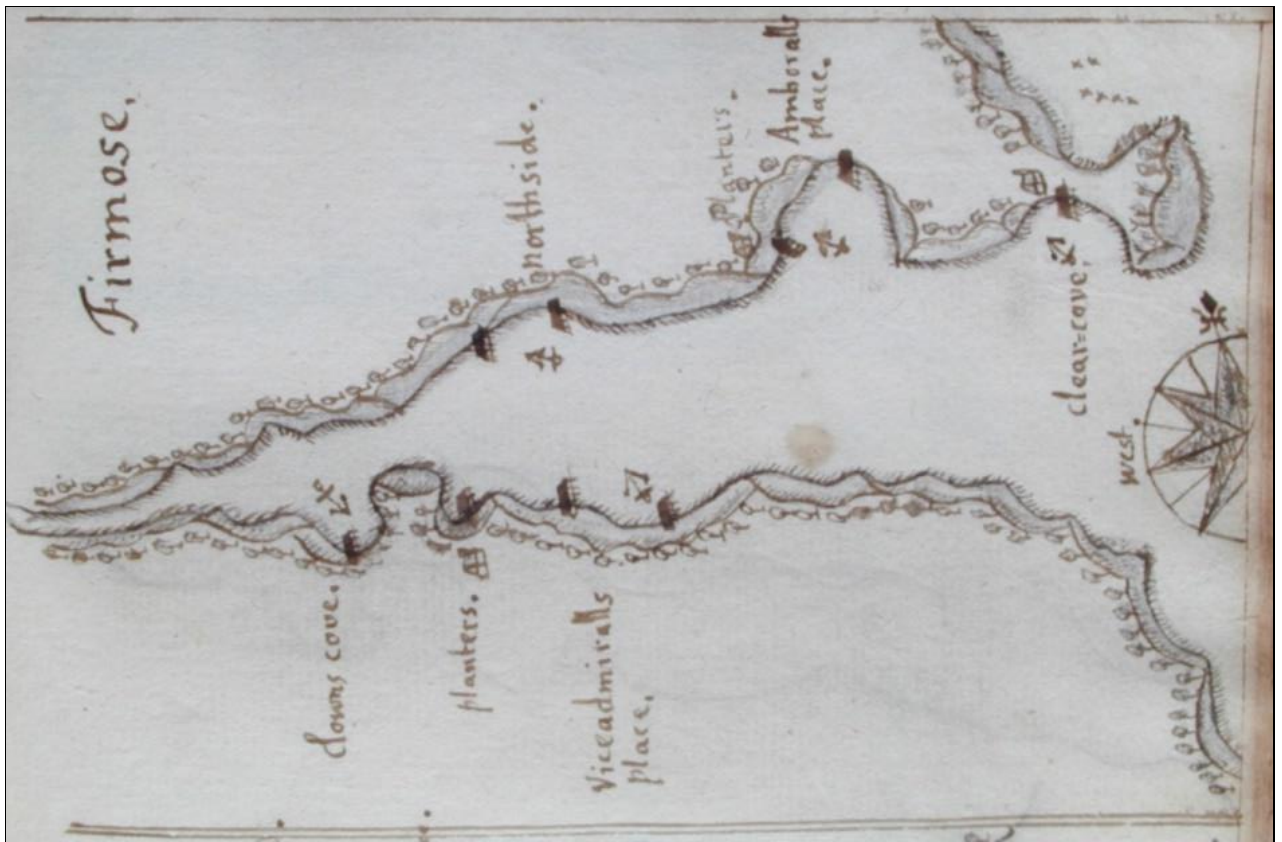 Firmose.
northside.
planters.
Amboralls
place.
clear=cove.
west.
clowns cove.
planters.
Viceadmiralls
place.